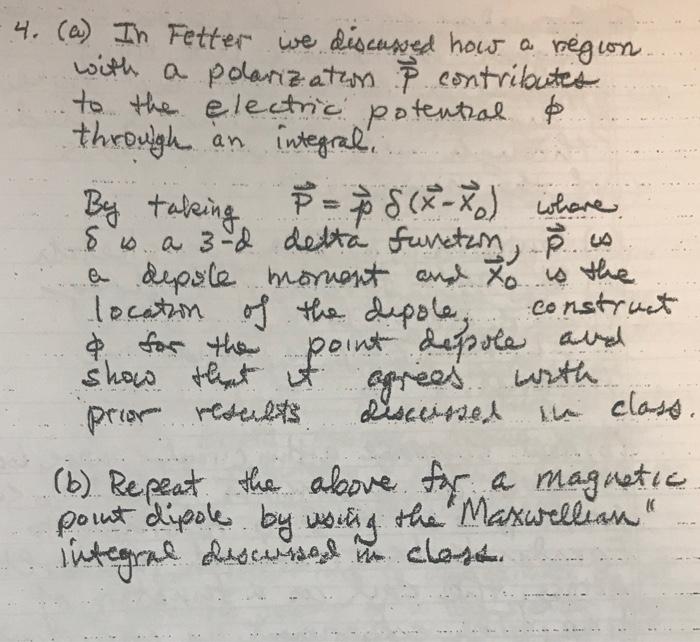 4. (a) In Fetter we discussed how a region
with a polarization P⃗ contributes
to the electric potential ϕ
through an integral.
By taking P⃗ = p⃗ δ(x⃗-x⃗₀) where
δ is a 3-d delta function, p⃗ is
a dipole moment and x⃗₀ is the
location of the dipole, construct
ϕ for the point dipole and
show that it agrees with
prior results discussed in class.
(b) Repeat the above for a magnetic
point dipole by using the "Maxwellian"
integral discussed in class.